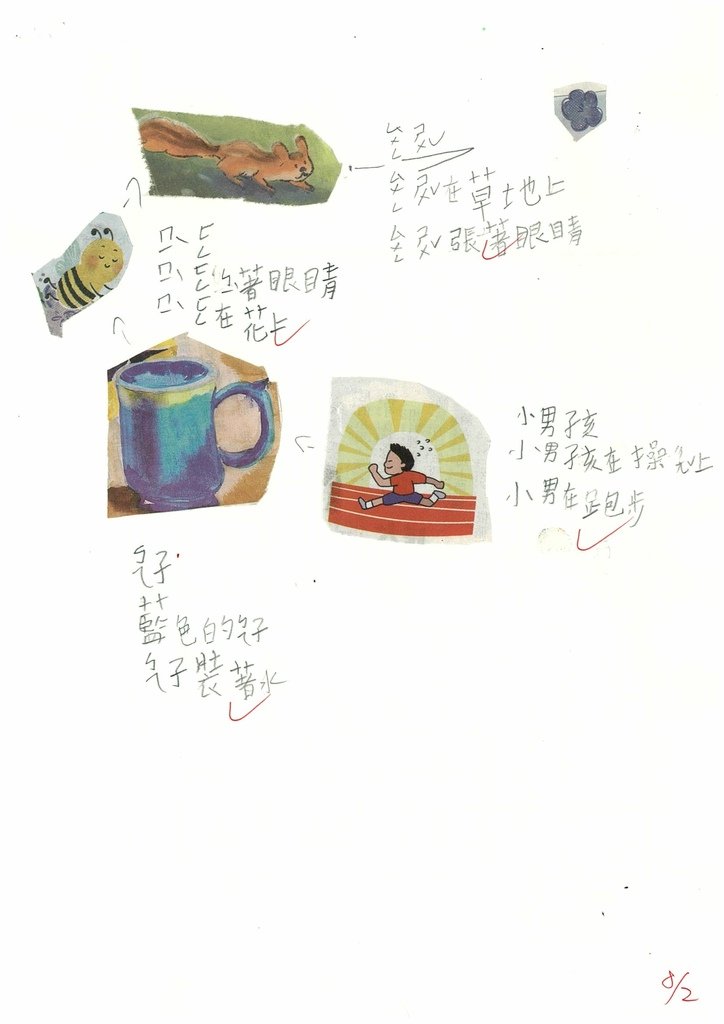 ㄙㄨㄥ ㄕㄨˇ
ㄙㄨㄥ ㄕㄨˇ在草地上
ㄙㄨㄥ ㄕㄨˇ張著眼睛
ㄇㄧˋ ㄈㄥ
ㄇㄧˋ ㄈㄥ ㄅㄧˋ著眼睛
ㄇㄧˋ ㄈㄥ在花上
小男孩
小男孩在操ㄔㄤˇ上
小男在跑步
ㄅㄟ子
藍色的ㄅㄟ子
ㄅㄟ子裝著水
8/2